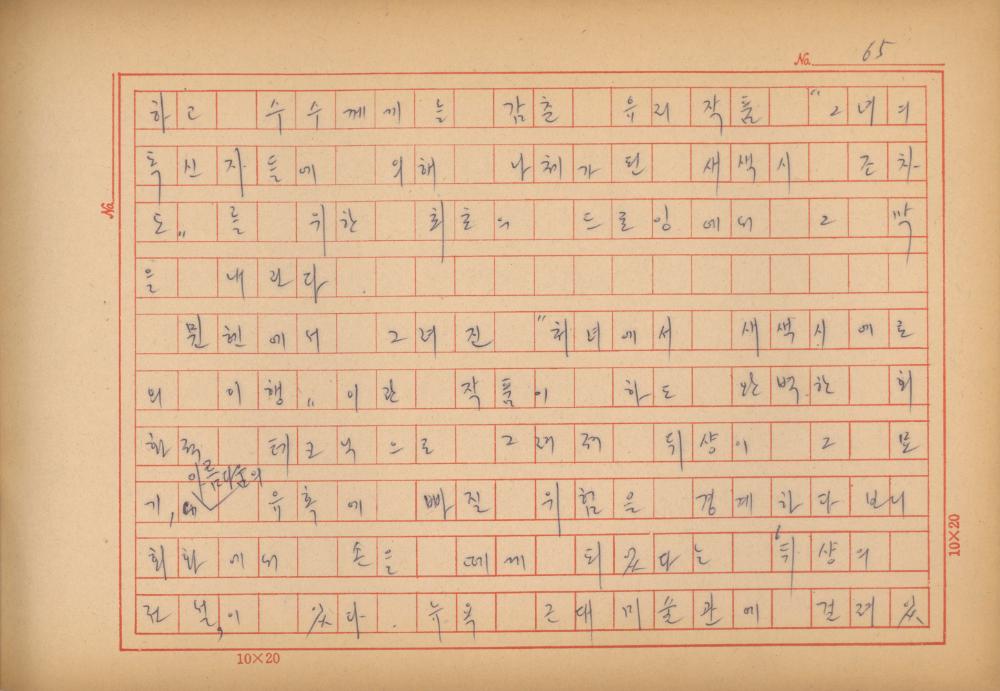 No. 65
하고 수수께끼를 감춘 유리 작품 "그녀의
독신자들에 의해 나체가 된 새색시 조차
도" 를 위한 최초의 드로잉에서 그 막
을 내린다.
뮌헨에서 그려진 "처녀에서 새색시에로
의 이행" 이란 작품이 하도 완벽한 회
화적 테크닉으로 그려져 뒤샹이 그 묘
아름다움의
기, 에 유혹에 빠질 위험을 경계하다 보니
회화에서 손을 떼게 되었다는 뒤샹의
전설이 있다. 뉴욕 근대미술관에 걸려있
No.
10×20
10×20